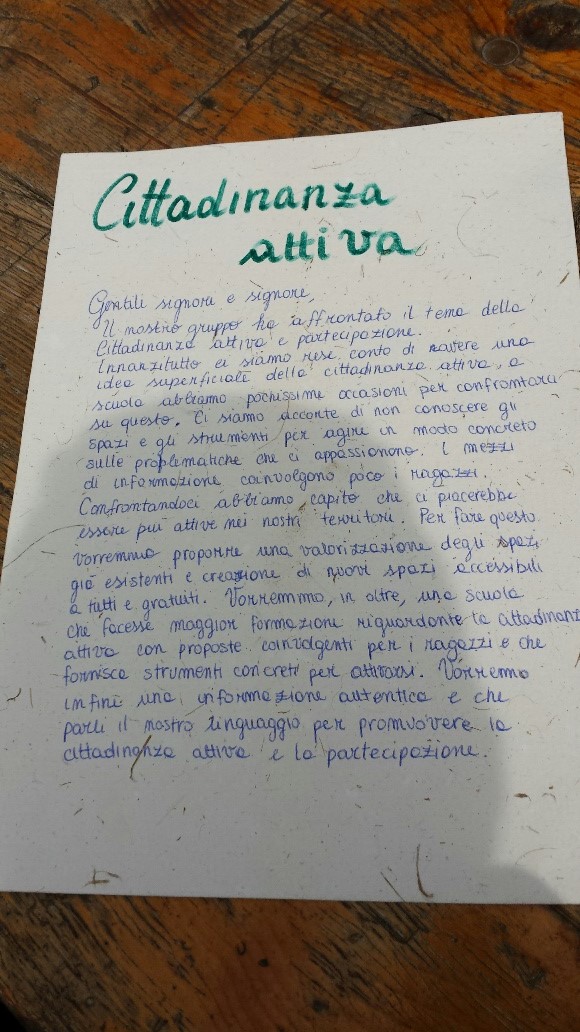 Cittadinanza
attiva
Gentili signore e signore,
Il nostro gruppo ha affrontato il tema della
Cittadinanza attiva e partecipazione.
Innanzitutto ci siamo rese conto di avere una
idea superficiale della cittadinanza attiva, a
scuola abbiamo pochissime occasioni per confrontarci
su questo. Ci siamo accorte di non conoscere gli
spazi e gli strumenti per agire in modo concreto
sulle problematiche che ci appassionano. I mezzi
di informazione coinvolgono poco i ragazzi.
Confrontandoci abbiamo capito che ci piacerebbe
essere più attive nei nostri territori. Per fare questo
vorremmo proporre una valorizzazione degli spazi
già esistenti e creazione di nuovi spazi accessibili
a tutti e gratuiti. Vorremmo, in oltre, una scuola
che facesse maggior formazione riguardante la cittadinanz
attiva con proposte coinvolgenti per i ragazzi e che
fornisca strumenti concreti per attivarsi. Vorremo
infine una informazione autentica e che
parli il nostro linguaggio per promuovere la
cittadinanza attiva e la partecipazione.